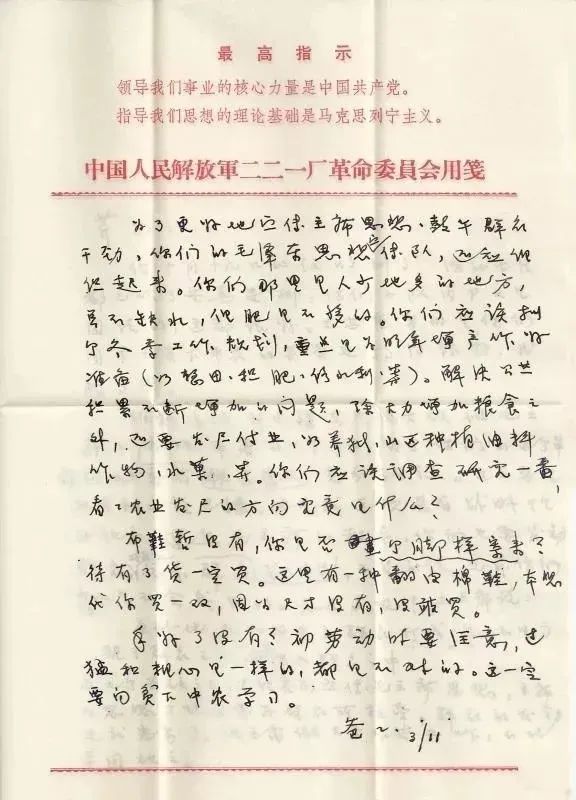 最高指示
领导我们事业的核心力量是中国共产党。
指导我们思想的理论基础是马克思列宁主义。
中国人民解放軍二二一厂革命委員会用笺
为了更好地宣传主席思想、鼓午群众
干劲，你们的毛泽东思想宣传队，应
起来。你们那里是人少地多的地方，
虽不缺水，但肥是不够的。你们应该制
订冬季工作规划，重点是为明年增产作好
准备（以积田、积肥、修水利等）。解决公共
积累不断增加的问题，除大力增加粮食之
外，还要发尸付业，以养猪，山区种植油料
作物，水菓等。你们应该调查研究一番，
看看农业发尸的方向究竟是什么？
布鞋暂没有，你是否画个脚样寄来？
待有了货一定买。这里有一种翻皮棉鞋，本想
代你买一双，因尺寸没有，没敢买。
手好了没有？初劳动时要注意，过
猛和粗心是一样的，都是不对的。这一定
要向贫下中农学习。
爸 3/11